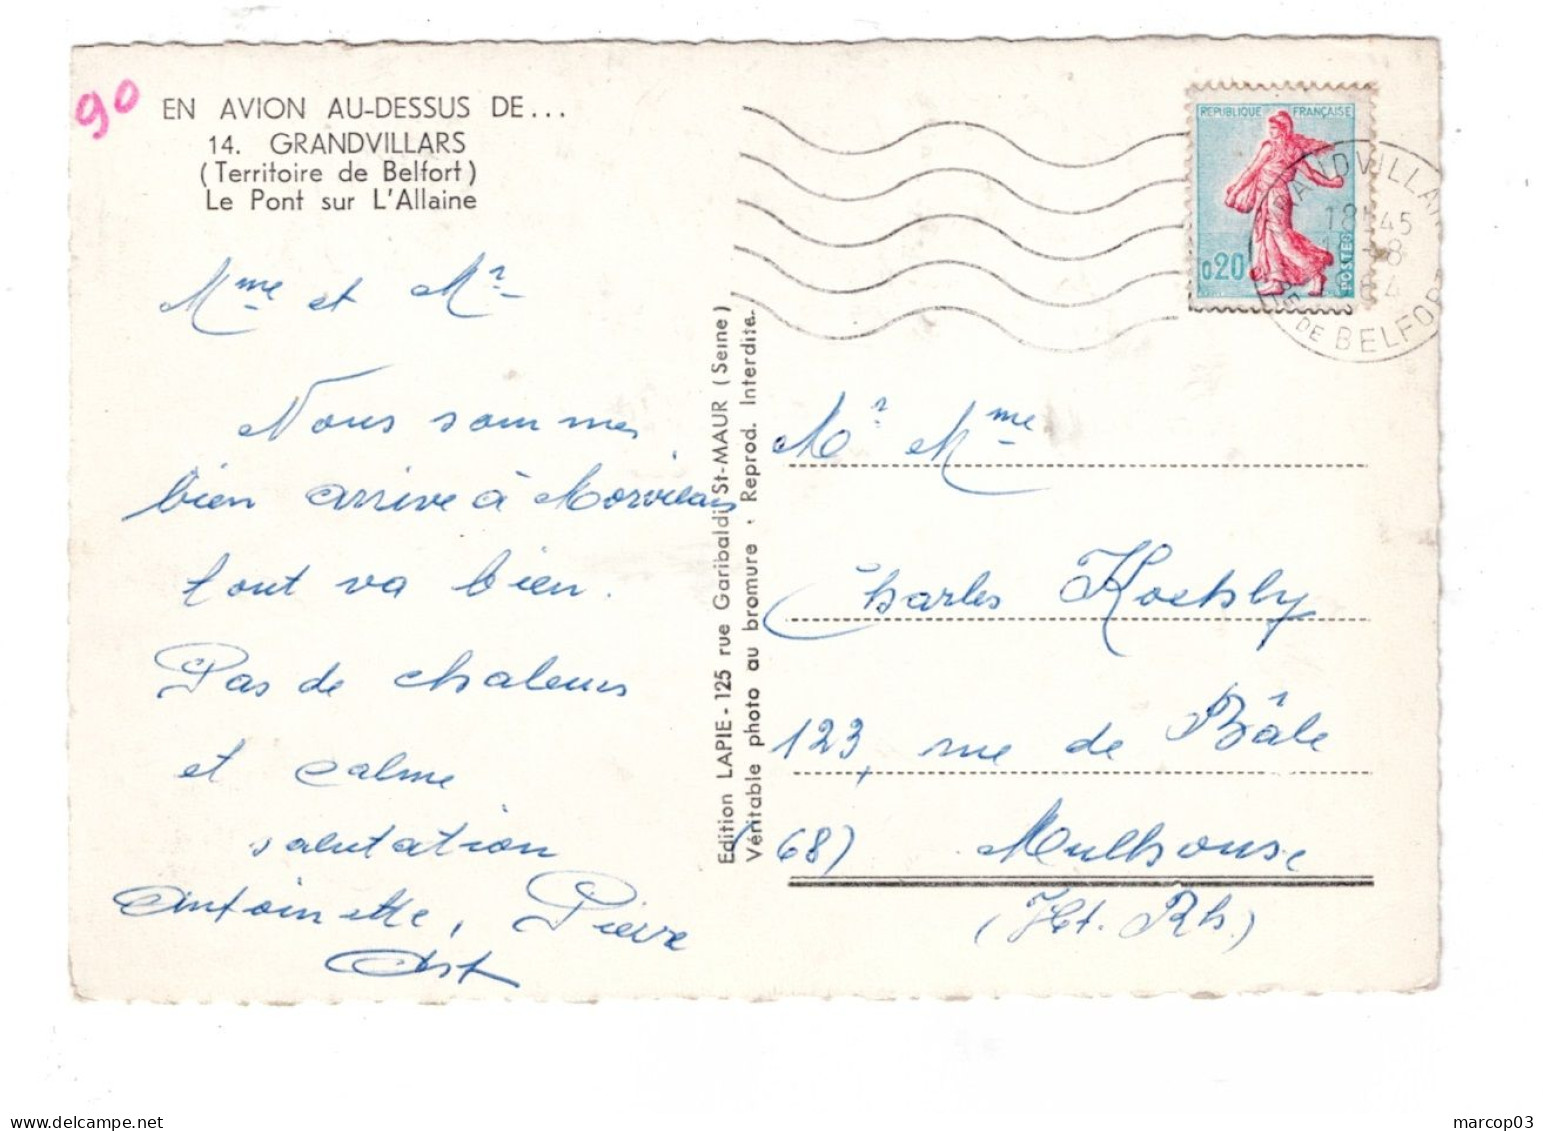 90
EN AVION AU-DESSUS DE...
14. GRANDVILLARS
(Territoire de Belfort)
Le Pont sur L'Allaine
Mme et Mr
Nous sommes
bien arrive à Morvillars
tout va bien.
Pas de chaleurs
et calme
salutation
Antoinette, Pierre
Edition LAPIE - 125 rue Garibaldi St-MAUR (Seine)
Véritable photo au bromure - Reprod. Interdite.
REPUBLIQUE FRANÇAISE
0,20
POSTES
GRANDVILLARS
18H45
-8
64
DE BELFORT
Mr Mme
Charles
123, rue de Bâle
(68) Mulhouse
(Ht. Rh.)
marcop03